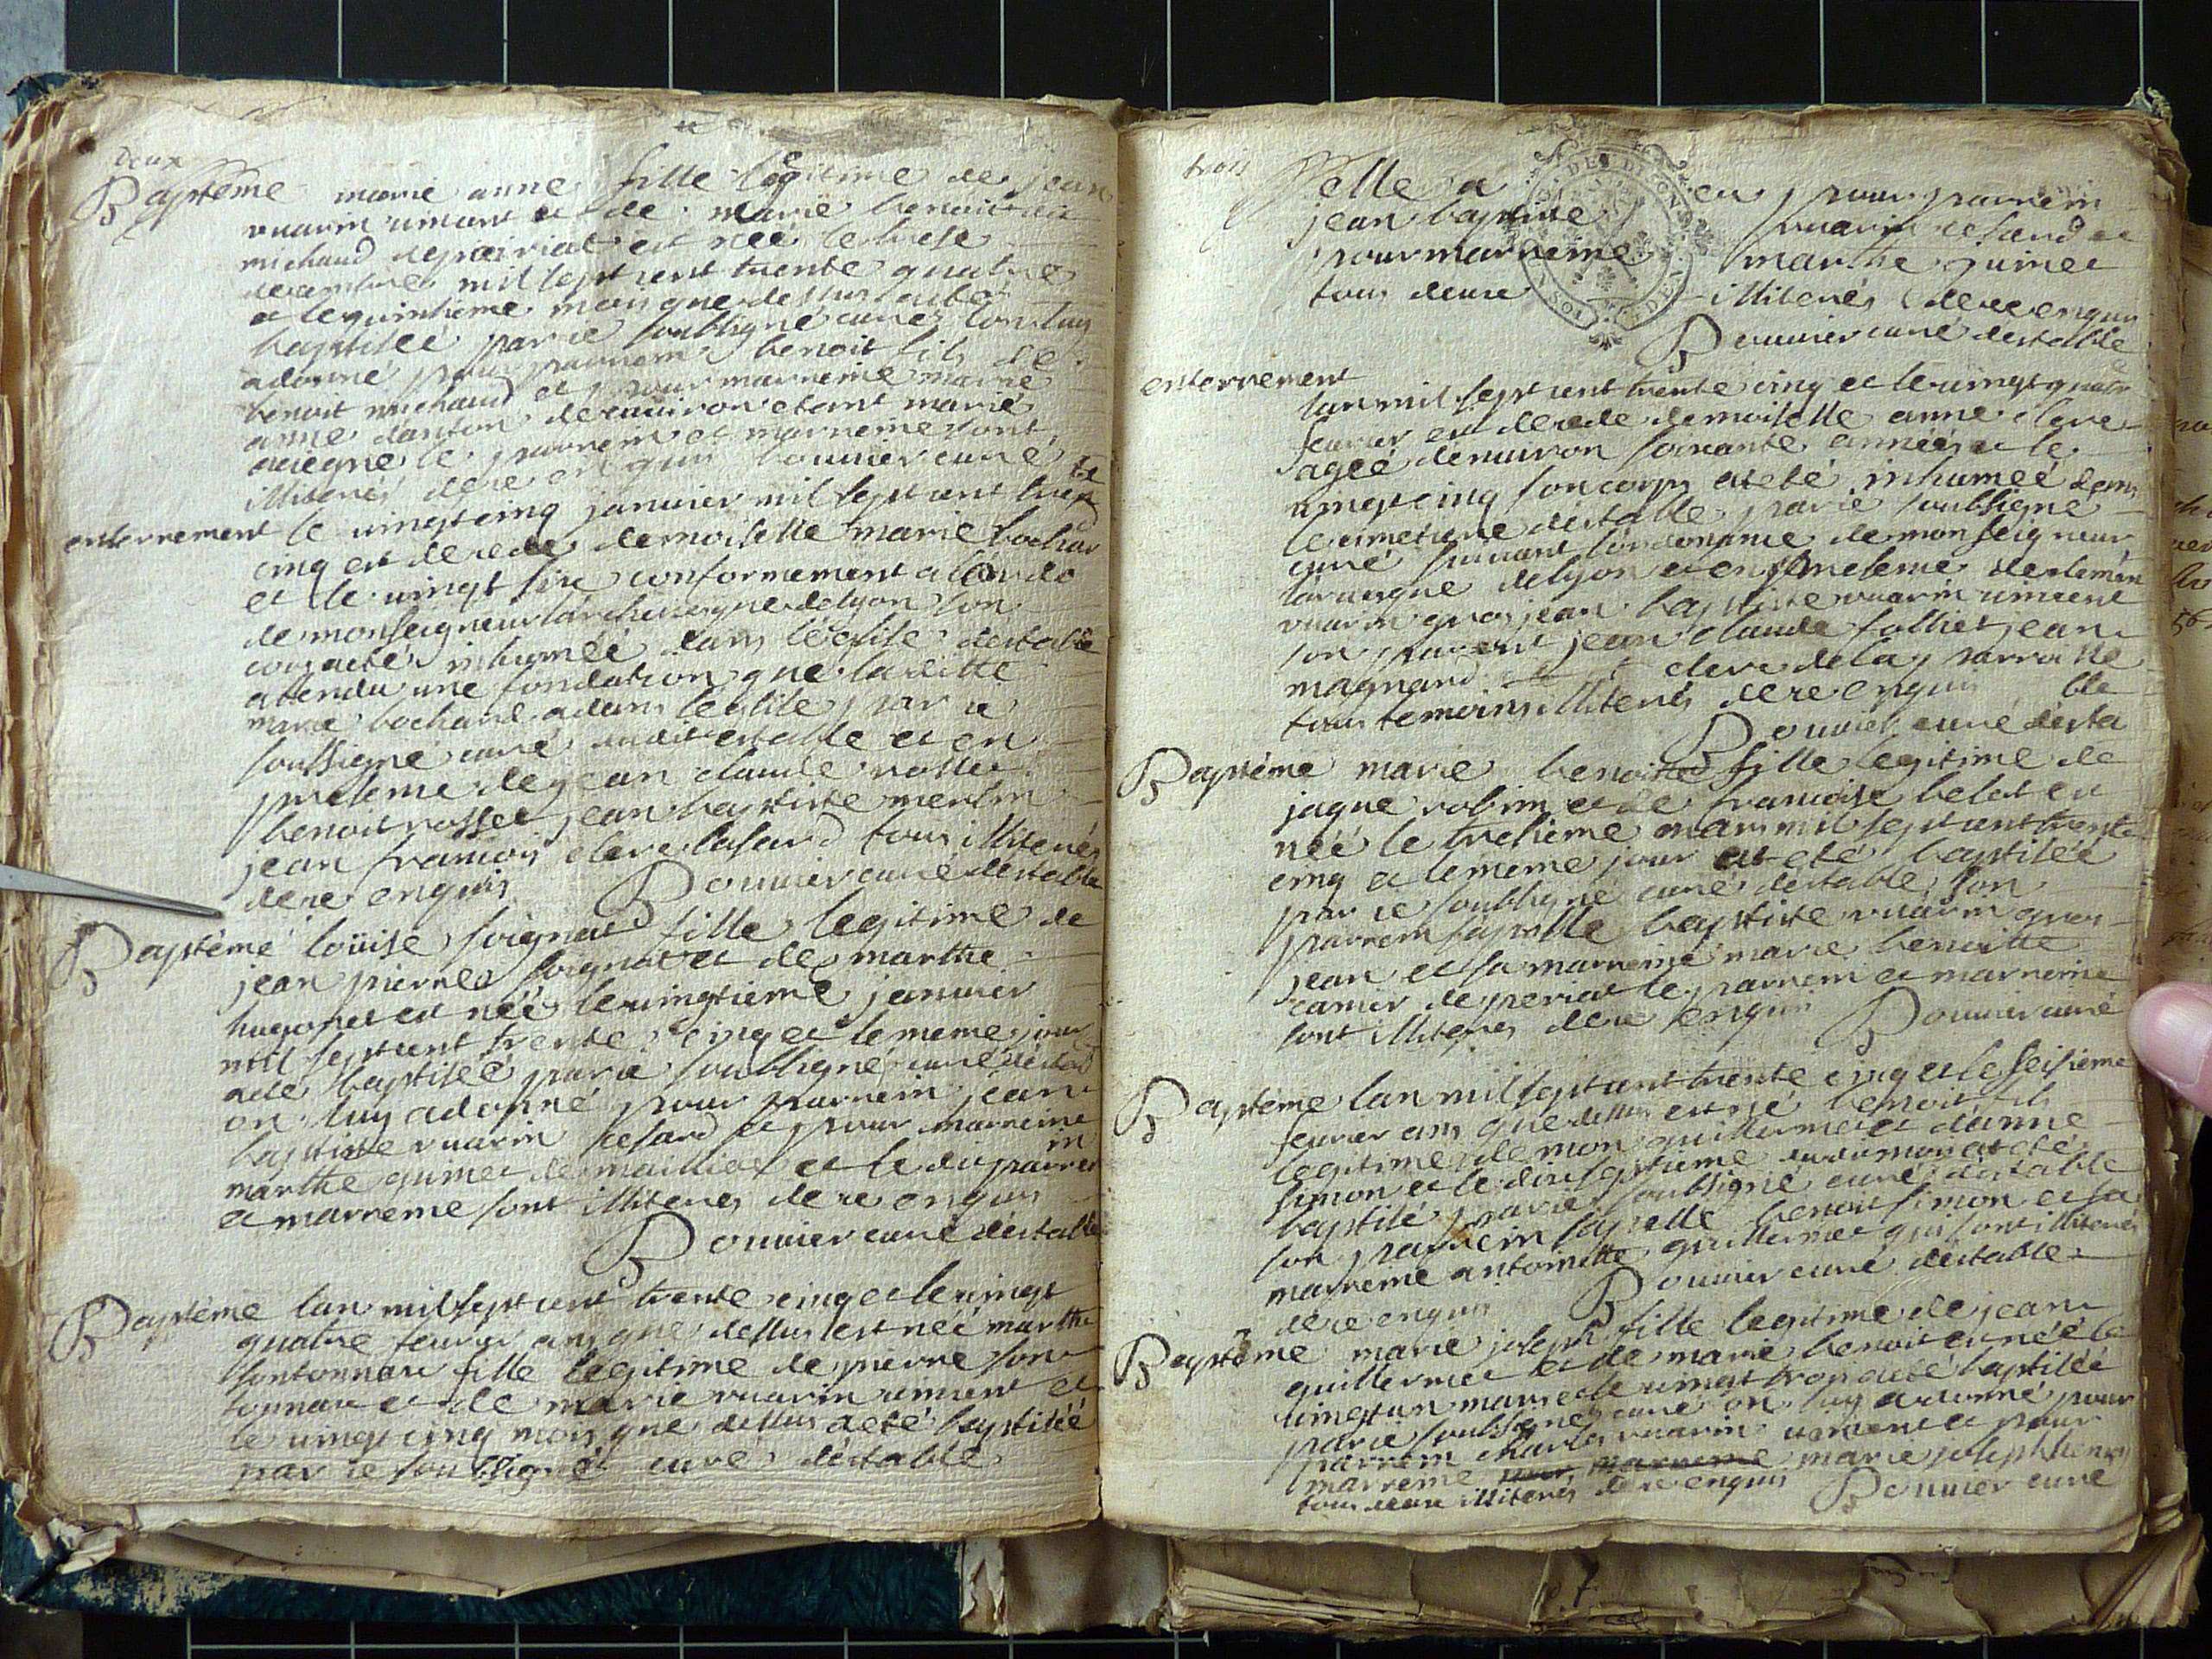 deux
Baptême marie anne fille legitime de jean
vuarin vincent et de marie benoitte
michaud de peiriat est née le trese
decembre mil sept cent trente quatre
et le quinsieme mois que dessus a eté
baptisée par ie soubsigné curé lon luy
a donné pour parrein benoit fils de
benoit michaud et pour marreine marie
anne danton de ceuiron etant marié
le parrein et marreine sont
illiterés de ce enquis bouuier curé
enterrement le vingt cinq janvier mil sept cent trente
cinq est decedé demoiselle marie bochard
et le vingt six conformement a l'ordo
de monseigneur larcheveque de lyon son
corps a eté inhumée dans l'eglise d'estable
atendu une fondation que laditte
marie bochard a dans leglise par ie
soussigné curé dudit estable et en
presence de jean claude rosset
benoit rosset jean baptiste merlin
jean francois clerc lasard tous illiterés
de ce enquis Bouuier curé d'estable
Baptême loüise soignat fille legitime de
jean pierre soignat et de marthe
hugonet est née le vingtieme janvier
mil sept cent trente cinq et le meme jour
a eté baptisée par ie soubsigné curé d'estab
on luy a donné pour parrein jean
baptiste vuarin cesard et pour marreine
marthe guinet de mailliat et le dit parrein
et marreine sont illiterés de ce enquis
Bouuier curé d'estable
Baptême lan mil sept cent trente cinq et le vingt
quatre feurier ans que dessus est née marthe
sontonnax fille legitime de pierre son
tonnax et de marie vuarin vincent et
le vingt cinq mois que dessus a eté baptisée
par ie soubsigné curé d'estable
trois
elle a eu pour parrein
jean baptiste vuarin cesard et
pour marreine marthe guinet
tous deux illiterés de ce enquis
Bouuier curé destable
enterrement
lan mil sept cent trente cinq et le vingt quatr
feurier est decedé demoiselle anne clerc
ageé denuiron soixante années et le
vingt cinq son corps a eté inhumeé dans
le cimetiere destable par ie soubsigné
curé suivant l'ordonance de monseigneur
larueque de lyon et en presence de clement
vuarin gros jean baptiste vuarin vincent
son parent jean claude folliet jean
magnand clerc de la parroisse
tous temoins illiterés de ce enquis
Bouuier curé d'estable
Baptême marie benoitte fille legitime de
jaque robin et de francoise belot est
née le treisieme mars mil sept cent trente
cinq et le meme jour a eté baptisée
par ie soubsigné curé d'estable son
parrein sapelle baptiste vuarin gros
jean et sa marreine marie benoitte
camier de periat le parrein et marreine
sont illiterés de ce enquis Bouuier curé
Baptême lan mil sept cent trente cinq et le seisieme
feurier ans que dessus est né benoit fils
legitime de mon guillermet et d'anne
simon et le dix septieme du dit mois a eté
baptisé par ie soubsigné curé d'estable
son parrein sapelle benoit simon et sa
marreine antoinette guillermet qui sont illiterés
de ce enquis Bouuier curé destable
Baptême marie joseph fille legitime de jean
guillermet et de marie benoit est née le
vingt un mars et le vingt trois a eté baptisée
par ie soubsigné curé on luy a donné pour
parrein charles vuarin vincent et pour
marreine marie joseph henry
tous deux illiterés de ce enquis Bouuier curé